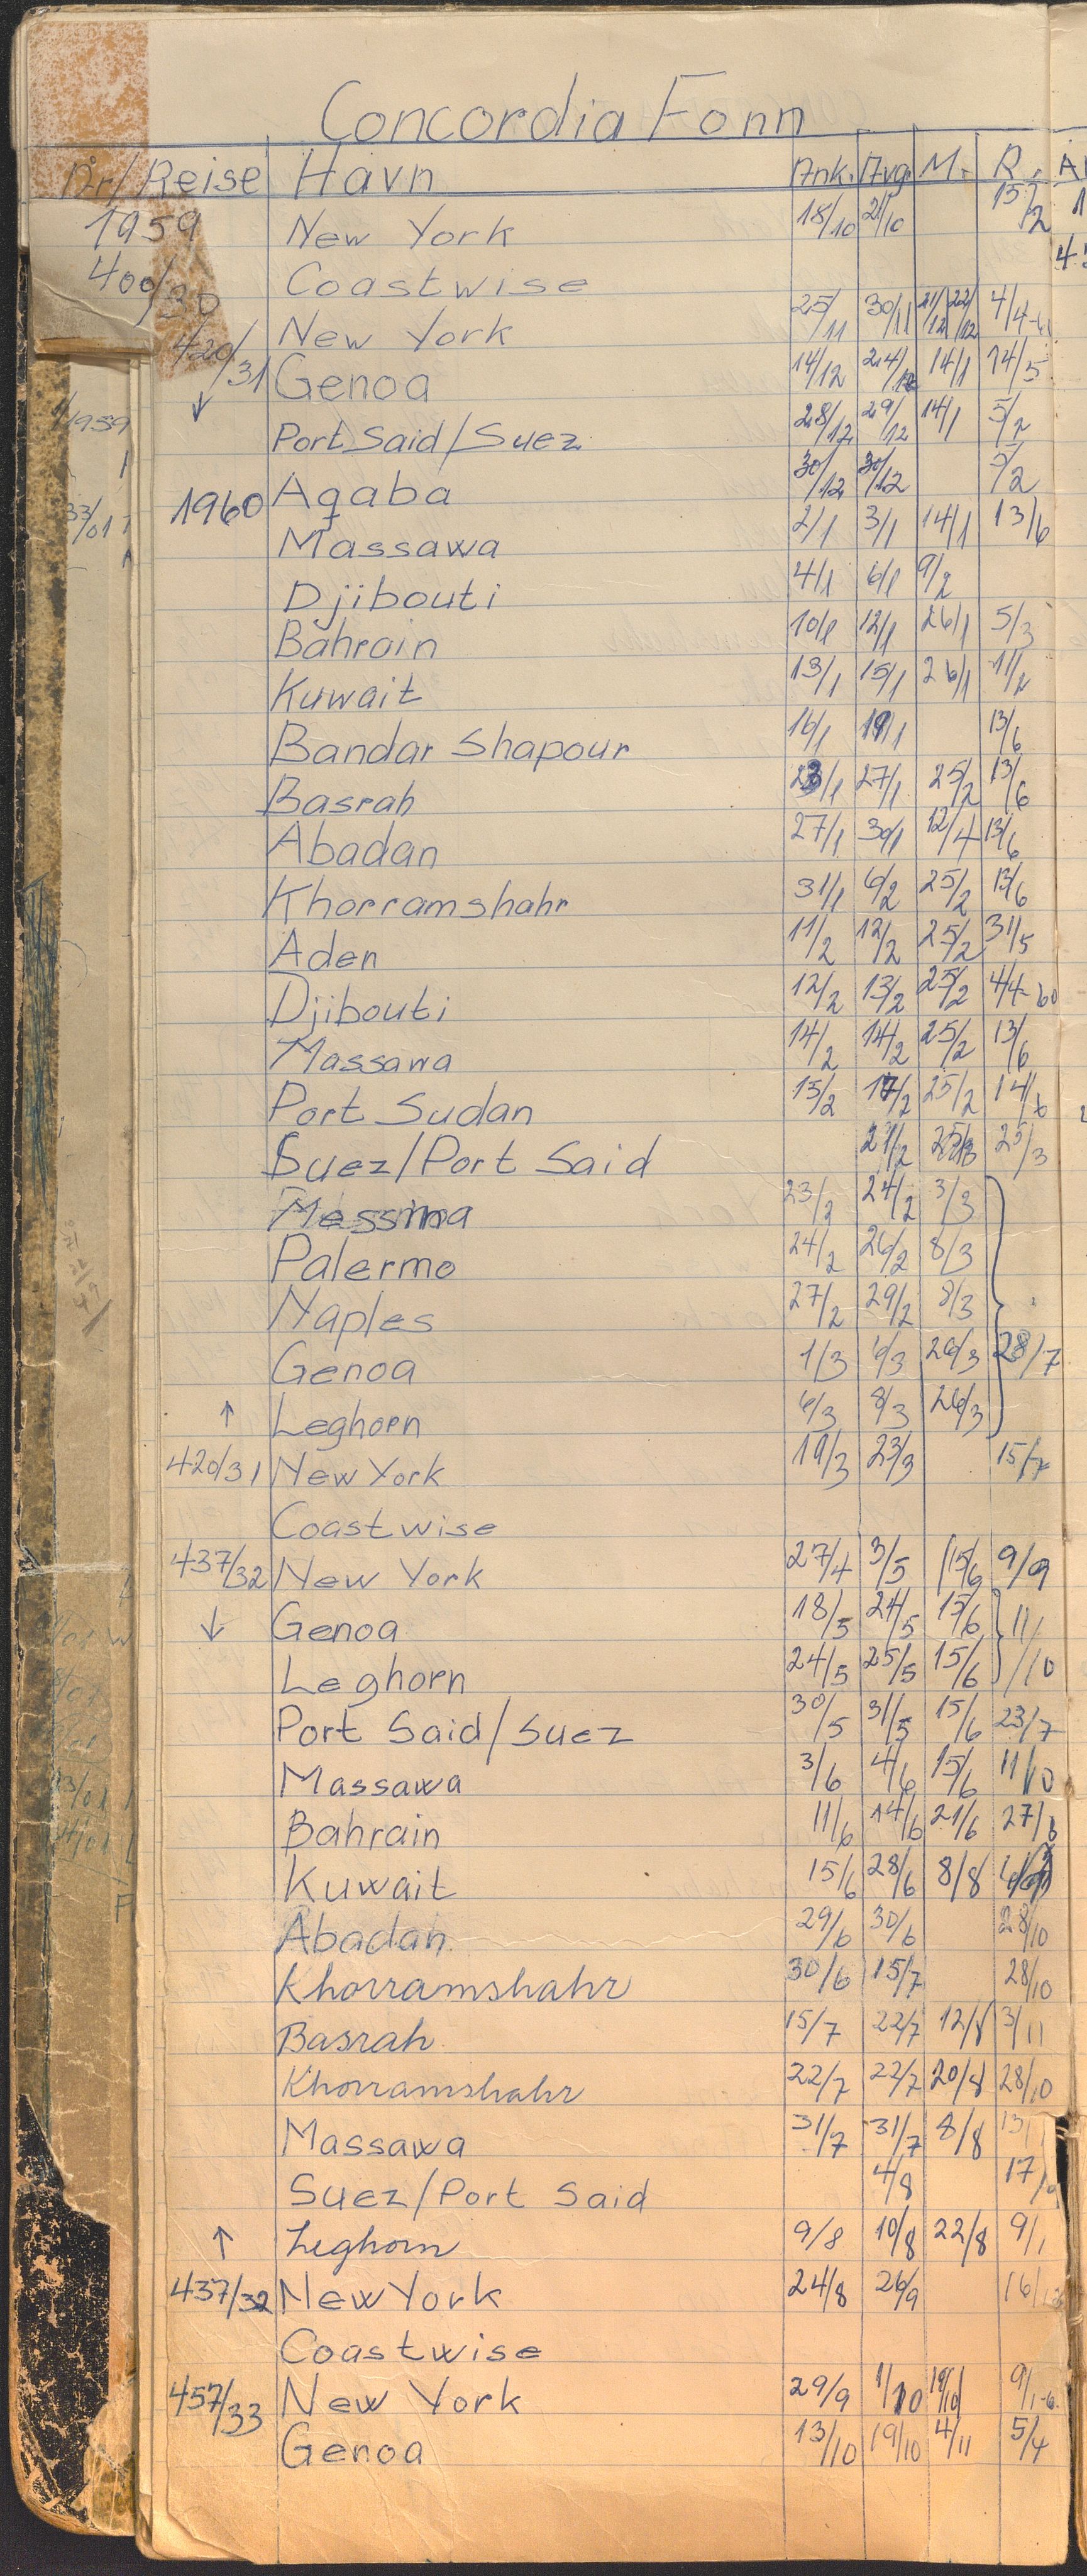 Concordia Fonn
År/Reise Havn Ank. Avg. M. R.
1959 New York 18/10 21/10 15/12
400/30 Coastwise
New York 25/11 30/11 21/12 22/12 4/4
420/31 Genoa 14/12 24/12 14/1 14/5
↓ Port Said/Suez 28/12 29/12 14/1 5/2
1960 Aqaba 30/12 30/12 5/2
Massawa 2/1 3/1 14/1 13/6
Djibouti 4/1 6/1 9/2
Bahrain 10/1 12/1 26/1 5/3
Kuwait 13/1 15/1 26/1 11/2
Bandar Shapour 16/1 19/1 13/6
Basrah 23/1 27/1 25/2 13/6
Abadan 27/1 30/1 12/4 13/6
Khorramshahr 31/1 6/2 25/2 13/6
Aden 11/2 12/2 25/2 31/5
Djibouti 12/2 13/2 25/2 4/4-60
Massawa 14/2 14/2 25/2 13/6
Port Sudan 15/2 17/2 25/2 14/6
Suez/Port Said 21/2 25/3
Messina 23/2 24/2 3/3
Palermo 24/2 26/2 8/3
Naples 27/2 29/2 8/3
Genoa 1/3 6/3 26/3 28/7
↑ Leghorn 6/3 8/3 26/3
420/31 New York 19/3 23/3 15/7
Coastwise
437/32 New York 27/4 3/5 15/6 9/9
↓ Genoa 18/5 24/5 15/6 11/10
Leghorn 24/5 25/5 15/6
Port Said/Suez 30/5 31/5 15/6 23/7
Massawa 3/6 4/6 15/6 11/10
Bahrain 11/6 14/6 21/6 27/8
Kuwait 15/6 28/6 8/8
Abadan 29/6 30/6 28/10
Khorramshahr 30/6 15/7 28/10
Basrah 15/7 22/7 12/8 3/11
Khorramshahr 22/7 22/7 20/8 28/10
Massawa 31/7 31/7 8/8 13/
Suez/Port Said 4/8 17/
↑ Leghorn 9/8 10/8 22/8 9/1
437/32 New York 24/8 26/9 16/12
Coastwise
457/33 New York 29/9 1/10 18/10 9/1-6
Genoa 13/10 19/10 4/11 5/4